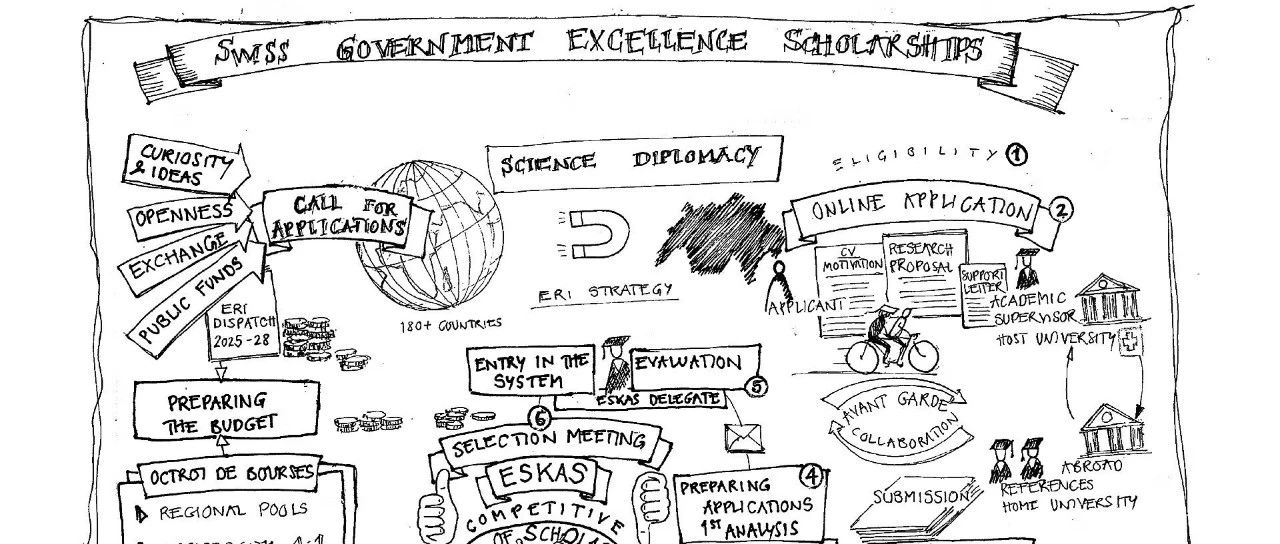 SWISS GOVERNMENT EXCELLENCE SCHOLARSHIPS
CURIOSITY
& IDEAS
OPENNESS
EXCHANGE
PUBLIC FUNDS
CALL FOR
APPLICATIONS
180+ COUNTRIES
SCIENCE DIPLOMACY
ERI STRATEGY
ELIGIBILITY 1
ONLINE APPLICATION 2
CV
MOTIVATION
RESEARCH
PROPOSAL
SUPPORT
LETTER
APPLICANT
ACADEMIC
SUPERVISOR
HOST UNIVERSITY
ERI
DISPATCH
2025-28
PREPARING
THE BUDGET
ENTRY IN THE
SYSTEM
EVALUATION
5
ESKAS DELEGATE
6
SELECTION MEETING
ESKAS
COMPETITIVE
AVANT GARDE
COLLABORATION
ABROAD
REFERENCES
HOME UNIVERSITY
SUBMISSION
4
PREPARING
APPLICATIONS
1ST ANALYSIS
OCTROI DE BOURSES
REGIONAL POOLS